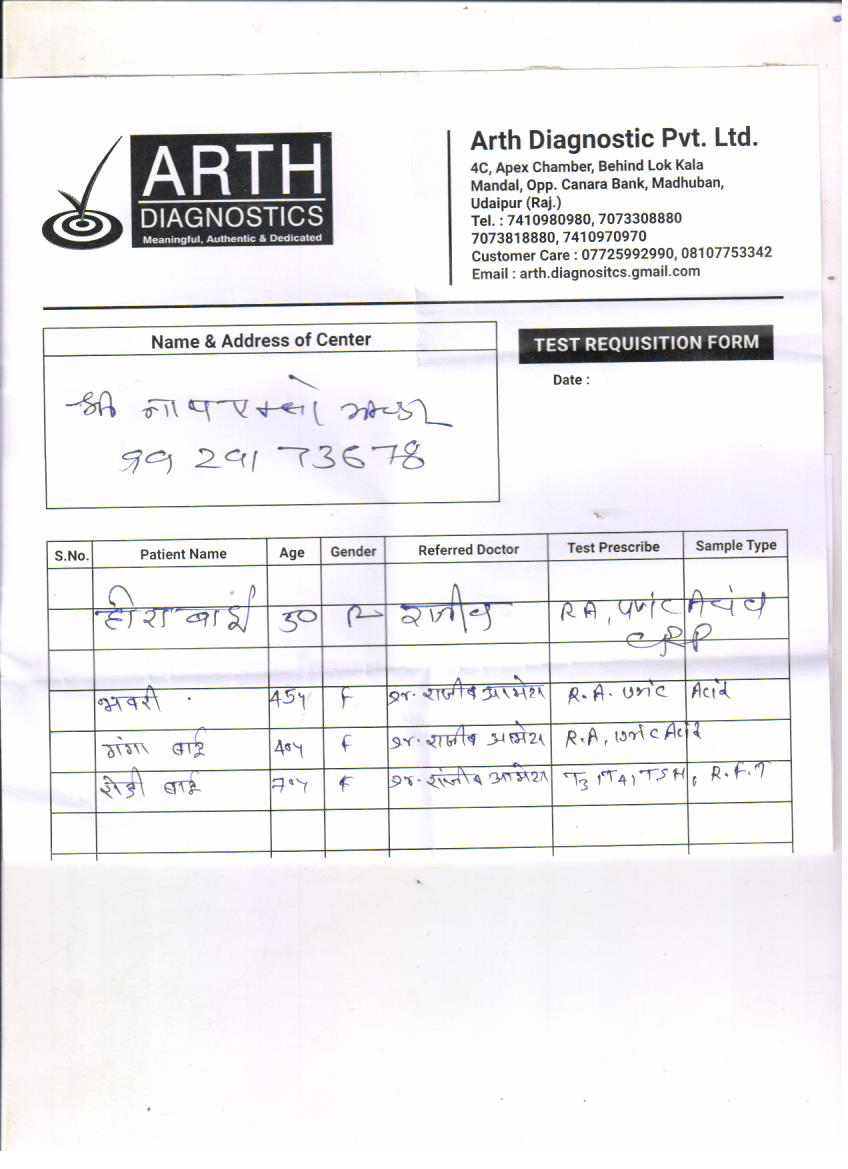 ARTH
DIAGNOSTICS
Meaningful, Authentic & Dedicated
Arth Diagnostic Pvt. Ltd.
4C, Apex Chamber, Behind Lok Kala
Mandal, Opp. Canara Bank, Madhuban,
Udaipur (Raj.)
Tel. : 7410980980, 7073308880
7073818880, 7410970970
Customer Care : 07725992990, 08107753342
Email : arth.diagnositcs.gmail.com
Name & Address of Center
TEST REQUISITION FORM
Date :
श्री
99 291 73678
S.No. Patient Name Age Gender Referred Doctor Test Prescribe Sample Type
हीरा बाई 30 राजीव RA, uric Acid
CRP
भवरी 45y F डॉ. राजीव R.A. uric Acid
गंगा बाई 40y F डॉ. राजीव R.A, uric Acid
बाई 70y F डॉ. T3, T4, TSH, R.F.T